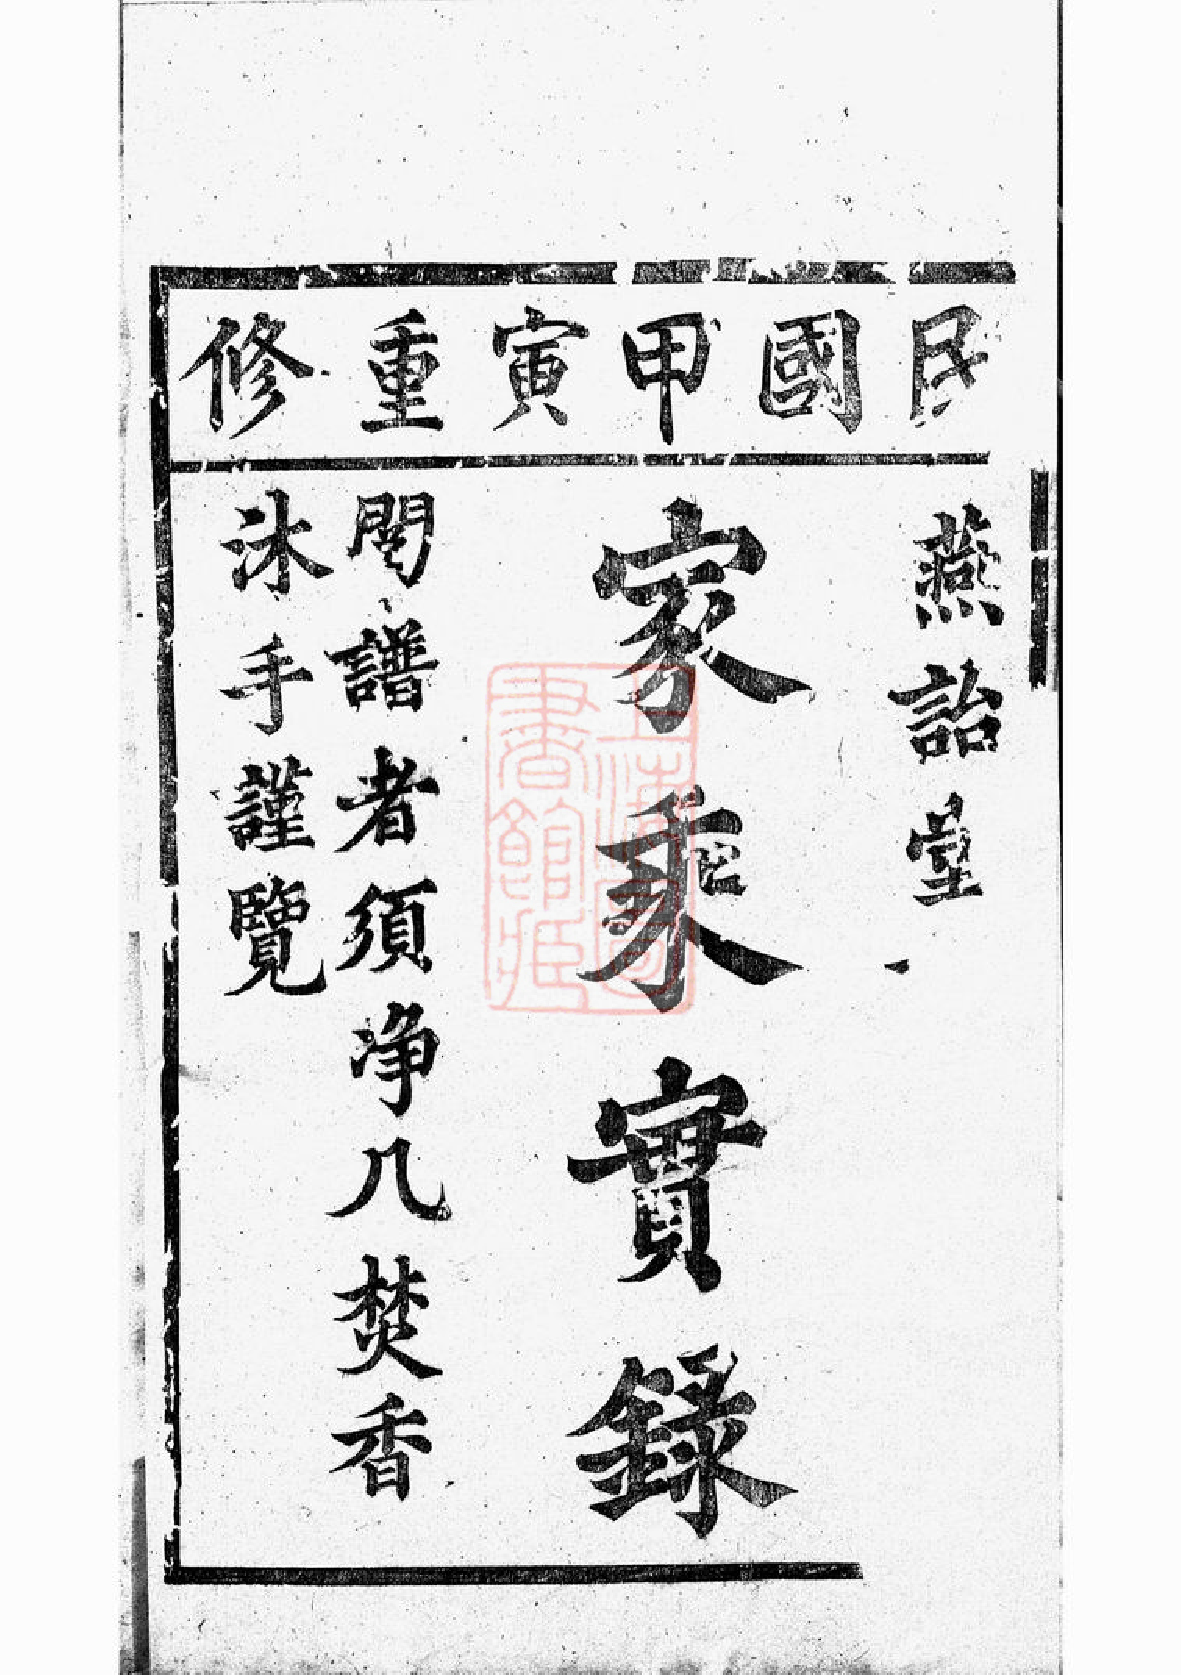 民國甲寅重修
燕詒堂
家乘實錄
閱譜者須净几焚香
沐手謹覽
上海圖書館藏